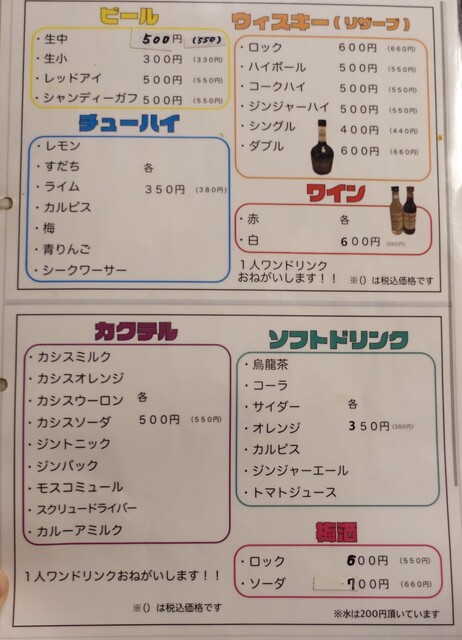 ビール
・生中 500円 (550)
・生小 300円 (330円)
・レッドアイ 500円 (550円)
・シャンディーガフ 500円 (550円)
チューハイ
・レモン
・すだち 各
・ライム 350円 (380円)
・カルピス
・梅
・青りんご
・シークワーサー
ウィスキー(リザーブ)
・ロック 600円 (660円)
・ハイボール 500円 (550円)
・コークハイ 500円 (550円)
・ジンジャーハイ 500円 (550円)
・シングル 400円 (440円)
・ダブル 600円 (660円)
ワイン
・赤 各
・白 600円
1人ワンドリンク
おねがいします!! ※()は税込価格です
カクテル
・カシスミルク
・カシスオレンジ
・カシスウーロン 各
・カシスソーダ 500円 (550円)
・ジントニック
・ジンバック
・モスコミュール
・スクリュードライバー
・カルーアミルク
1人ワンドリンクおねがいします!!
※()は税込価格です
ソフトドリンク
・烏龍茶
・コーラ
・サイダー 各
・オレンジ 350円
・カルピス
・ジンジャーエール
・トマトジュース
梅酒
・ロック 600円 (550円)
・ソーダ 700円 (660円)
※水は200円頂いています